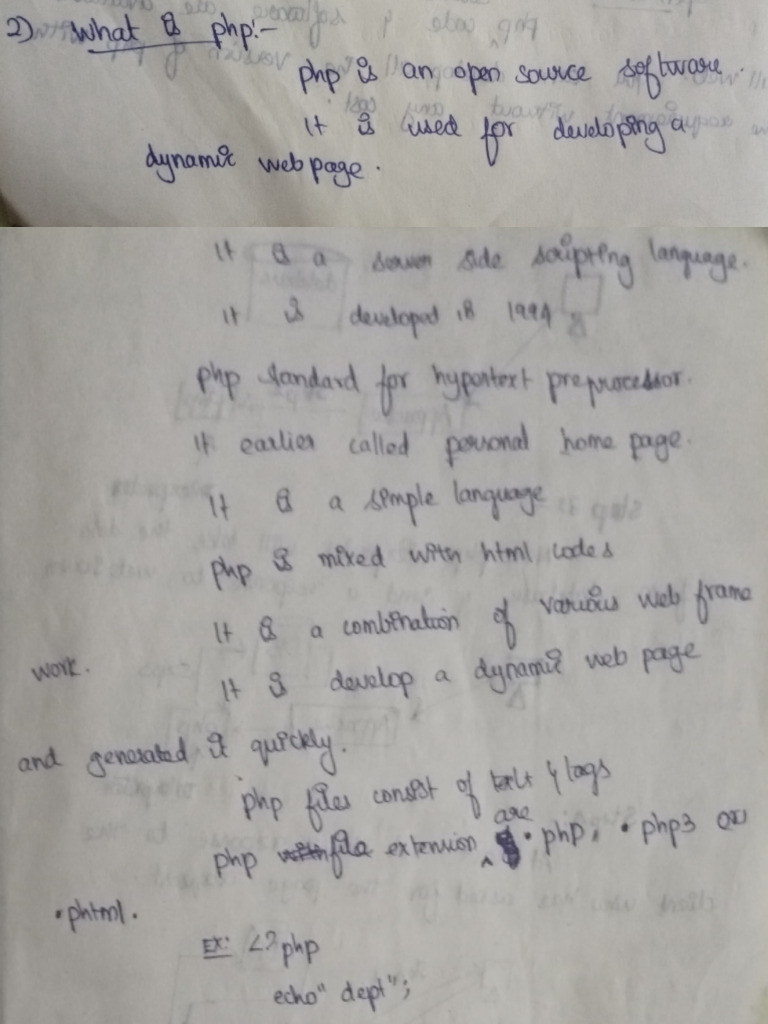 2) What is php:-
php is an open source software.
It is used for developing a
dynamic web page.
It is a server side scripting language.
It is developed is 1994
php standard for hypertext preprocessor.
It earlier called personal home page.
It is a simple language
php is mixed with html codes
It is a combination of various web frame
work.
It is develop a dynamic web page
and generated it quickly.
php files consist of text & tags
php file extension are .php, .php3 or
.phtml.
EX: <?php
echo" dept";